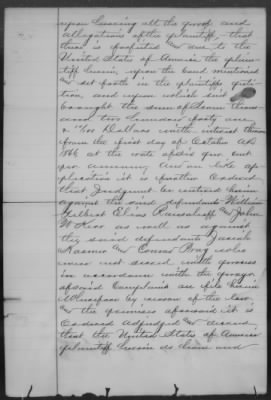 upon hearing all the proofs and
allegations of the plaintiff that
there is forfeited and due to the
United States of America the plain-
tiff herein, upon the bond mentioned
and set forth in the plaintiffs peti-
tion, and upon which suit is
brought the sum of
sand two hundred forty one
& /100 Dollars with interest there
from the first day of October AD
1866 at the rate of per cent
per annum, and on like ap-
plication it is further Ordered
that Judgment be entered herein
against the said defendants William
Gilbert Elias and John
W Kerr as well as against
the said defendants Jacob
Kasmer and Oscar who
were not served with process
in accordance with the prayer
of said Complaint on file herein
Wherefore by reason of the law
and the premises aforesaid it is
Ordered adjudged and decreed
that the United States of America
plaintiff herein do have and